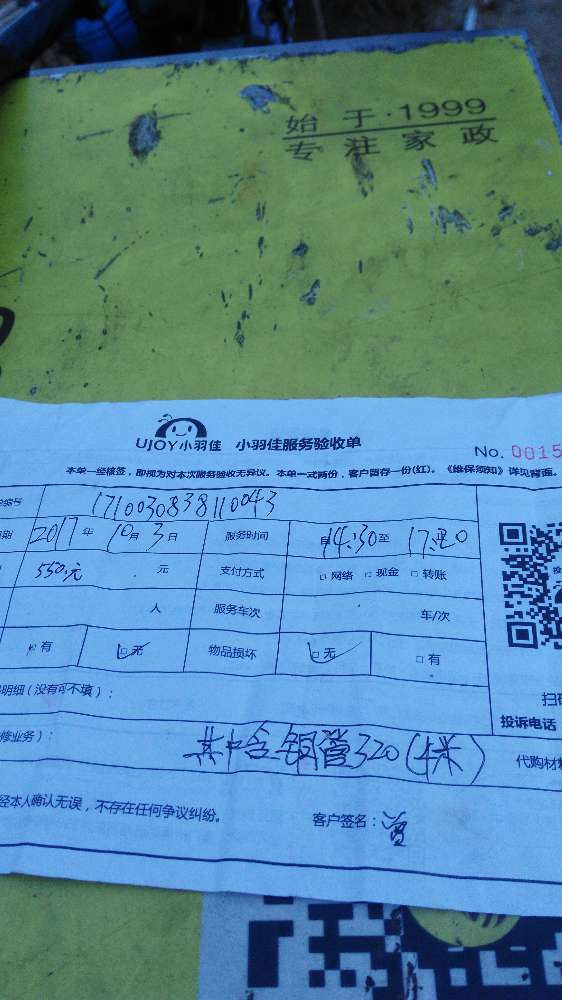 始于·1999
专注家政
UJOY小羽佳 小羽佳服务验收单
No. 0015
本单一经核签，即视为对本次服务验收无异议。本单一式两份，客户留存一份(红)。《维保须知》详见背面。
编号 1710030838110043
期 2017年 10月 3日 服务时间 14:30至
550.元 元 支付方式 □网络 □现金 □转账
人 服务车次 车/次
有 □无 物品损坏 □无 □有
明细（没有可不填）：
扫
投诉电话
修业务）： 其中含铜管320(4米) 代购材
经本人确认无误，不存在任何争议纠纷。 客户签名：